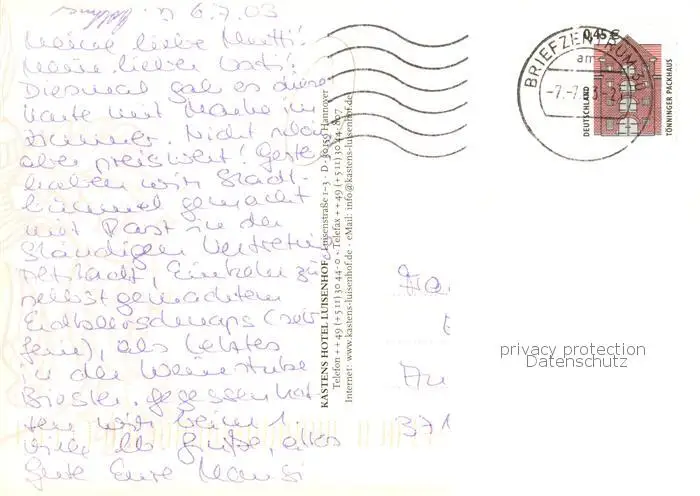 6.7.03
Meine liebe Mutti!
Mein lieber Vati!
Diesmal gab es diese
Karte mit Marke im
Zimmer. Nicht schön
aber preiswert! Gestern
haben wir Stadt-
bummel gemacht
mit Rast in der
Ständigen Vertretung
Altstadt, Einkehr zu
selbstgemachtem
Erdbeerschnaps (sehr
fein), als letztes
in der Weinstube
gegessen hat-
ten wir beim
viele lb. Grüße, alles
Gute Eure
KASTENS HOTEL LUISENHOF · Luisenstraße 1–3 · D - 30159 Hannover
Telefon ++49 (+511) 30 44-0 · Telefax ++49 (+511) 30 44-807
Internet: www.kastens-luisenhof.de · eMail: info@kastens-luisenhof.de
BRIEFZENTRUM 30
am
0,45 €
DEUTSCHLAND
TÖNNINGER PACKHAUS
371
privacy protection
Datenschutz